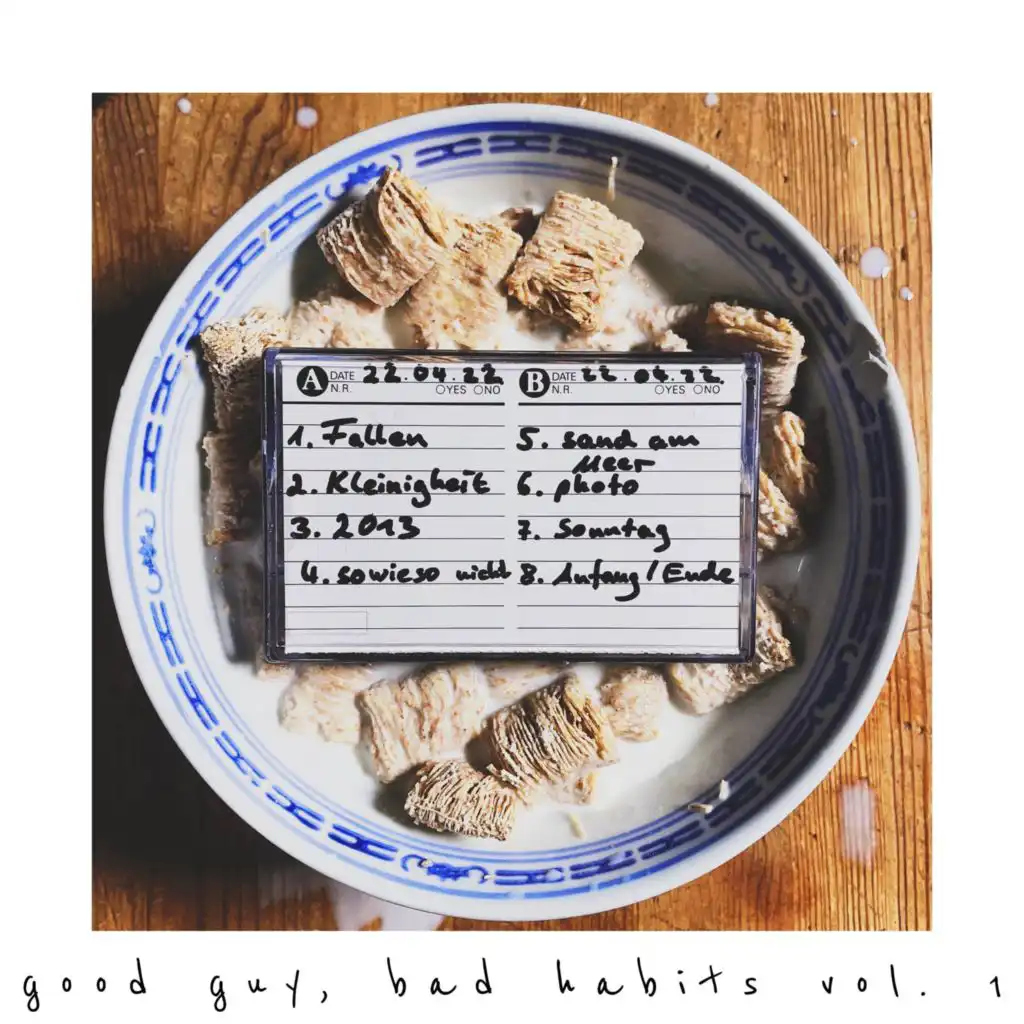 A DATE 22.04.22
N.R. YES NO
1. Fallen
2. Kleinigheit
3. 2013
4. sowieso nicht
B DATE 22.04.22.
N.R. YES NO
5. sand am
Meer
6. photo
7. Sonntag
8. Anfang/Ende
good guy, bad habits vol. 1